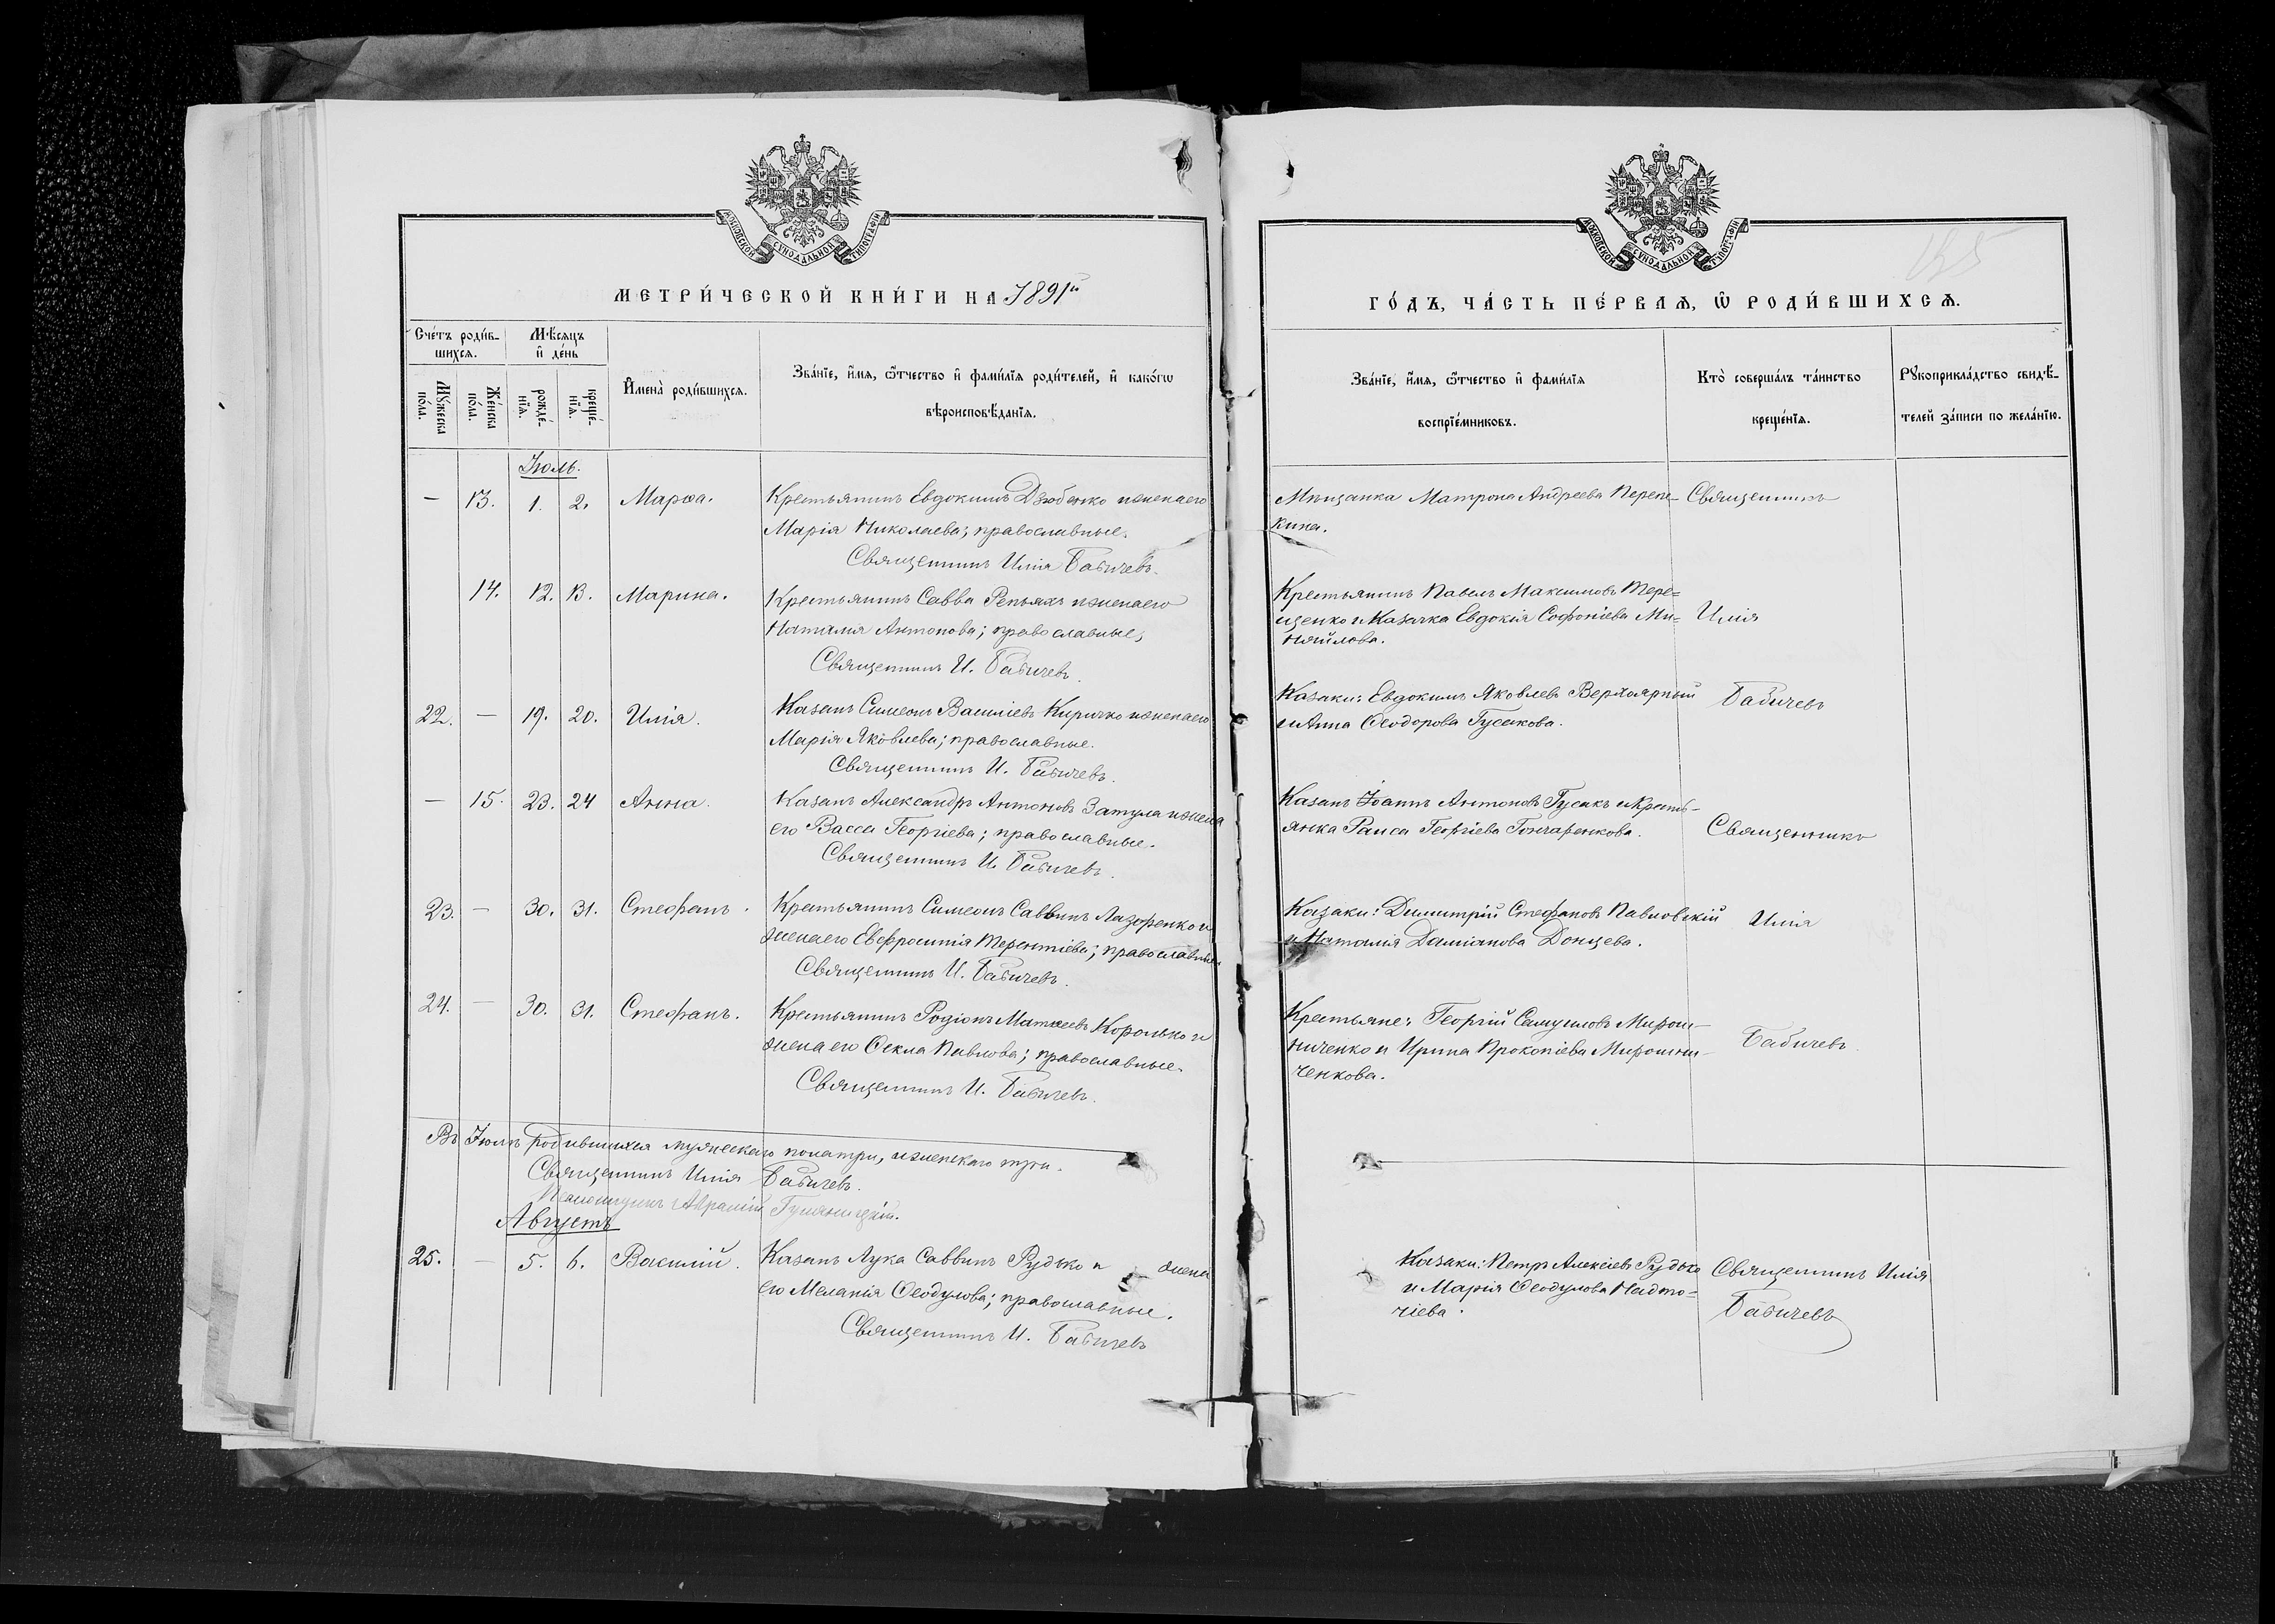 МОСКОВСКОЙ СѴНОДАЛЬНОЙ ТИПОГРАФІИ
МЕТРИ́ЧЕСКОЙ КНИ́ГИ НА 1891й
Сче́тъ роди́в-
шихсѧ.
Мѣ́сѧцъ
и҆ де́нь
Мꙋ́жеска
по́ла.
Же́нска
по́ла.
рожде́-
нїѧ.
креще́-
нїѧ.
И҆мена̀ роди́вшихсѧ.
Зва́нїе, и҆́мѧ, ѻ҆́тчество и҆ фами́лїѧ роди́телей, и҆ како́гѡ
вѣроисповѣ́данїѧ.
Іюль.
— 13. 1. 2. Марѳа. Крестьянинъ Евдокимъ Дзюбенко и жена его
Марія Николаева; православные.
Священникъ Илія Бабичевъ.
14. 12. 13. Марина. Крестьянинъ Савва Репьяхъ и жена его
Наталія Антонова; православные,
Священникъ И. Бабичевъ.
22. — 19. 20. Илія. Казакъ Симеонъ Василіевъ Киричко и жена его
Марія Яковлева; православные.
Священникъ И. Бабичевъ.
— 15. 23. 24 Анна. Казакъ Александръ Антоновъ Затула и жена
его Васса Георгіева; православные.
Священникъ И. Бабичевъ.
23. — 30. 31. Стефанъ. Крестьянинъ Симеонъ Саввинъ Лазоренко и
жена его Евфросинія Терентіева; православные
Священникъ И. Бабичевъ.
24. — 30. 31. Стефанъ. Крестьянинъ Родіонъ Матѳеевъ Королько и
жена его Ѳекла Павлова; православные.
Священникъ И. Бабичевъ.
Въ Іюлѣ родившихся мужескаго пола три, и женскаго три.
Священникъ Илія Бабичевъ.
Августъ
25. — 5. 6. Василій. Казакъ Лука Саввинъ Рудько и жена
его Меланія Ѳеодулова; православные.
Священникъ И. Бабичевъ
МОСКОВСКОЙ СѴНОДАЛЬНОЙ ТИПОГРАФІИ
ГО́ДЪ, ЧА́СТЬ ПЕ́РВАѦ, Ѡ҆ РОДИ́ВШИХСѦ.
Зва́нїе, и҆́мѧ, ѻ҆́тчество и҆ фами́лїѧ
воспрїе́мниковъ.
Кто̀ соверша́лъ та́инство
креще́нїѧ.
Рꙋкоприкла́дство свидѣ́-
телей за́писи по жела́нїю.
Мѣщанка Матрона Андреева Перепе- Священникъ
кина.
Крестьянинъ Павелъ Максимовъ Тере-
щенко и Казачка Евдокія Софоніева Ми- Илія
няйлова.
Казаки: Евдокимъ Яковлевъ Верхоярный Бабичевъ
и Анна Ѳеодорова Гусакова.
Казакъ Іоаннъ Антоновъ Гусакъ и Кресть-
янка Раиса Георгіева Гончаренкова. Священникъ
Казаки: Димитрій Стефановъ Павловскій Илія
и Наталія Даміанова Донцева.
Крестьяне: Георгій Самуиловъ Мирош-
ниченко и Ирина Прокопіева Мирошни- Бабичевъ
ченкова.
Казаки: Петръ Алексіевъ Рудько Священникъ Илія
и Марія Ѳеодулова Надто- Бабичевъ
чіева.